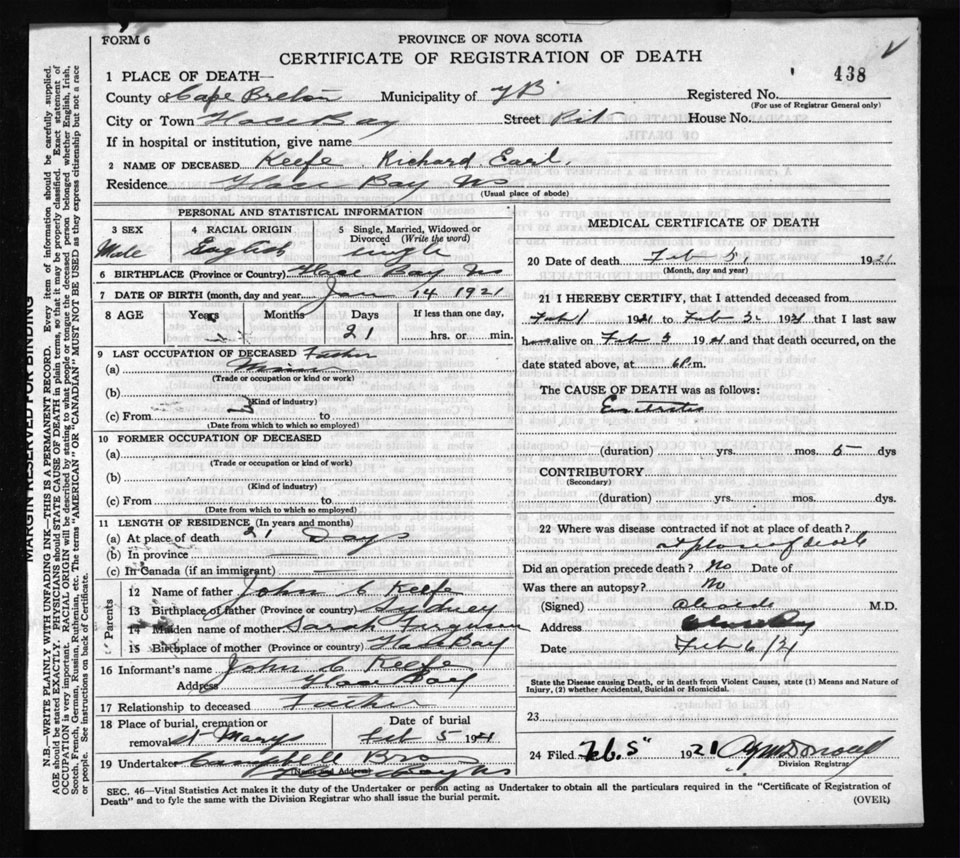 FORM 6
PROVINCE OF NOVA SCOTIA
CERTIFICATE OF REGISTRATION OF DEATH
438
1 PLACE OF DEATH—
County of Cape Breton Municipality of Registered No.
(For use of Registrar General only)
City or Town Glace Bay Street Pit House No.
If in hospital or institution, give name
2 NAME OF DECEASED Keefe Richard Earl.
Residence Glace Bay NS
(Usual place of abode)
PERSONAL AND STATISTICAL INFORMATION
3 SEX 4 RACIAL ORIGIN 5 Single, Married, Widowed or Divorced (Write the word)
Male English single
6 BIRTHPLACE (Province or Country) Glace Bay NS
7 DATE OF BIRTH (month, day and year) Jan 14 1921
8 AGE Years Months Days If less than one day,
21 hrs. or min.
9 LAST OCCUPATION OF DECEASED Father
(a)
(Trade or occupation or kind or work)
(b)
(Kind of industry)
(c) From to
(Date from which to which so employed)
10 FORMER OCCUPATION OF DECEASED
(a)
(Trade or occupation or kind of work)
(b)
(Kind of industry)
(c) From to
(Date from which to which so employed)
11 LENGTH OF RESIDENCE (In years and months)
(a) At place of death 21 Days
(b) In province
(c) In Canada (if an immigrant)
Parents
12 Name of father John C Keefe
13 Birthplace of father (Province or country) Sydney
14 Maiden name of mother Sarah Ferguson
15 Birthplace of mother (Province or country) Glace Bay
16 Informant's name John C Keefe
Address Glace Bay
17 Relationship to deceased Father
18 Place of burial, cremation or removal St Marys Date of burial Feb 5 1921
19 Undertaker Campbell Bros
(Name and Address) Glace Bay NS
MEDICAL CERTIFICATE OF DEATH
20 Date of death Feb 1921
(Month, day and year)
21 I HEREBY CERTIFY, that I attended deceased from
Feb 1 1921 to Feb 1921 that I last saw
h alive on Feb 1921 and that death occurred, on the
date stated above, at 6 P. m.
The CAUSE OF DEATH was as follows:
(duration) yrs. mos. 5 dys
CONTRIBUTORY
(Secondary)
(duration) yrs. mos. dys.
22 Where was disease contracted if not at place of death?
at place of death
Did an operation precede death? No Date of
Was there an autopsy? No
(Signed) M.D.
Address Glace Bay
Date Feb 6/21
State the Disease causing Death, or in death from Violent Causes, state (1) Means and Nature of Injury, (2) whether Accidental, Suicidal or Homicidal.
23
24 Filed Feb. 5" 1921
Division Registrar
SEC. 46—Vital Statistics Act makes it the duty of the Undertaker or person acting as Undertaker to obtain all the particulars required in the "Certificate of Registration of
Death" and to fyle the same with the Division Registrar who shall issue the burial permit.
(OVER)
MARGIN RESERVED FOR BINDING
N.B.—WRITE PLAINLY WITH UNFADING INK—THIS IS A PERMANENT RECORD. Every item of information should be carefully supplied.
AGE should be stated EXACTLY. PHYSICIANS should STATE CAUSE OF DEATH in plain terms, so that it may be properly classified. Exact statement of
OCCUPATION is very important. RACIAL ORIGIN will be described by stating to what people or tongue the deceased person belonged whether English, Irish,
Scotch, French, German, Russian, Ruthenian, etc. The terms "AMERICAN" OR "CANADIAN" MUST NOT BE USED as they express citizenship but not a race
or people. See instructions on back of Certificate.